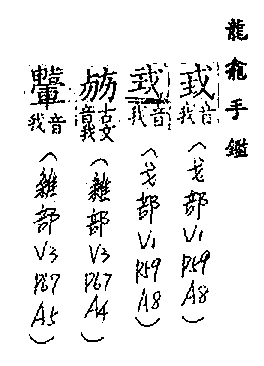 龍龕手鑑
音我（戈部V1P59A8）
音我（戈部V1P59A8）
古文音我（雜部V3P67A4）
音我（雜部V3P67A5）